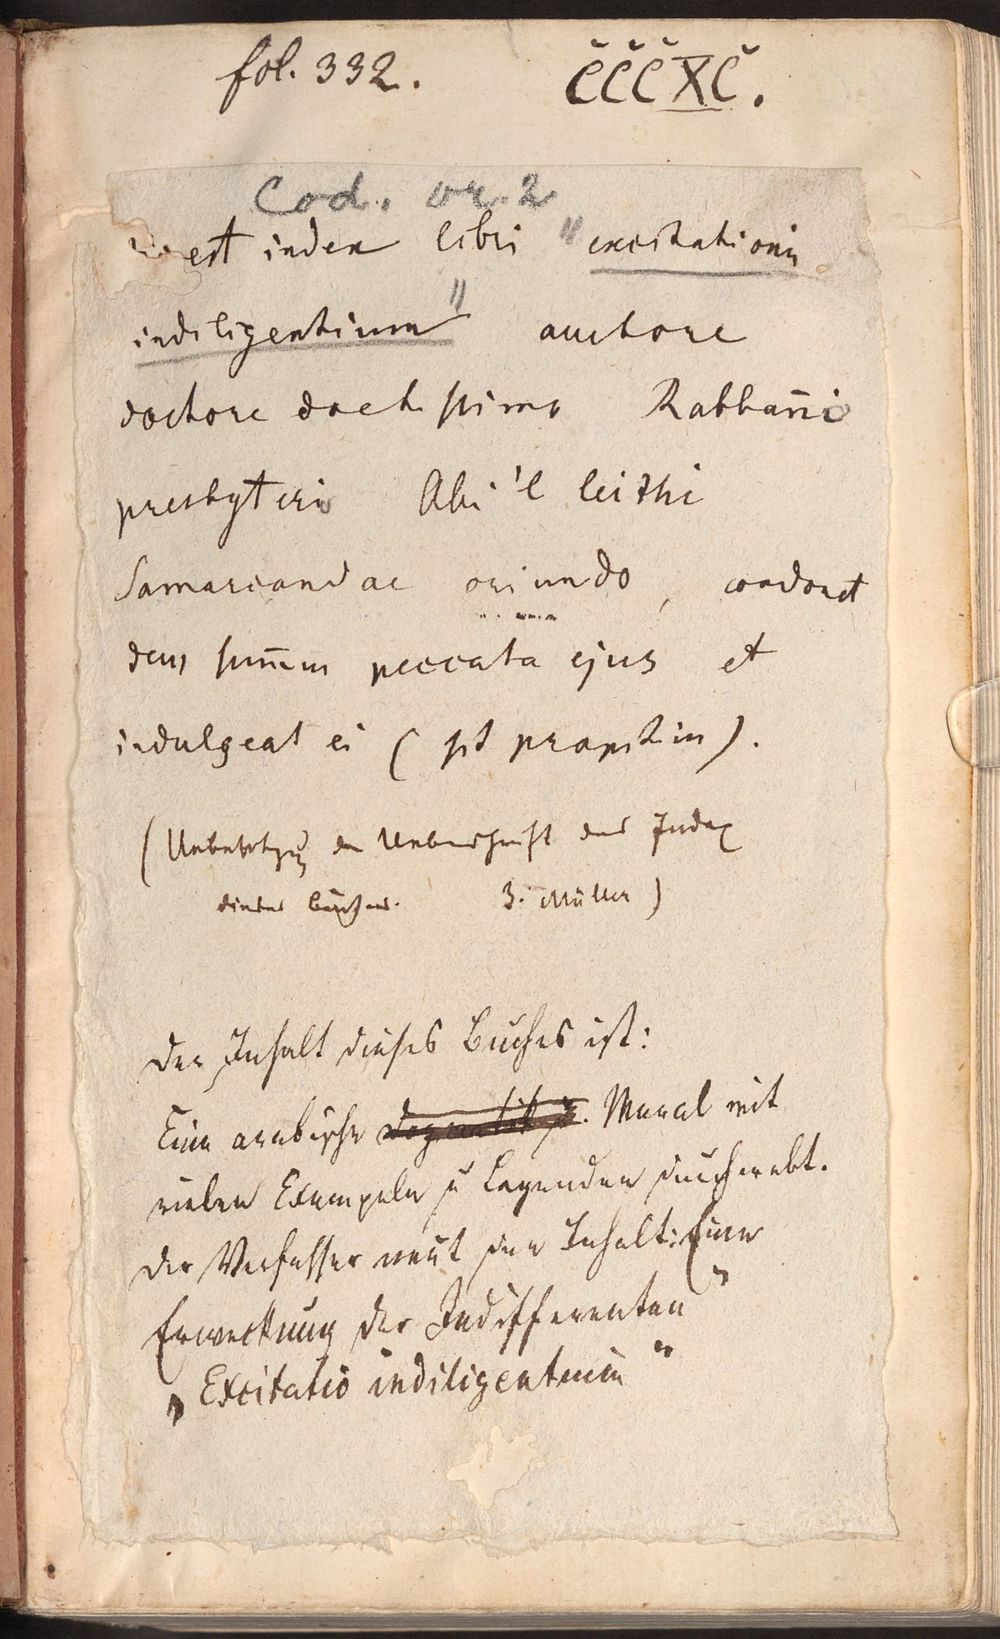 fol. 332. CCCXC.
Cod. or. 2
est index libri "excitationis
indiligentium" auctore
doctore doctissimo Rabbanio
presbytero Abi'l leithi
Samarcandae oriundo, condonet
deus summus peccata ejus et
indulgeat ei (sit propitius).
(Uebersetzung der Ueberschrift des Index
dieses Buches. J. Müller)
Der Inhalt dieses Buches ist:
Eine arabische Dogmatik u. Moral mit
vielen Exempeln u Legenden durchwebt.
Der Verfasser nent den Inhalt: Eine
Erweckung der Indifferenten"
„Excitatio indiligentium"